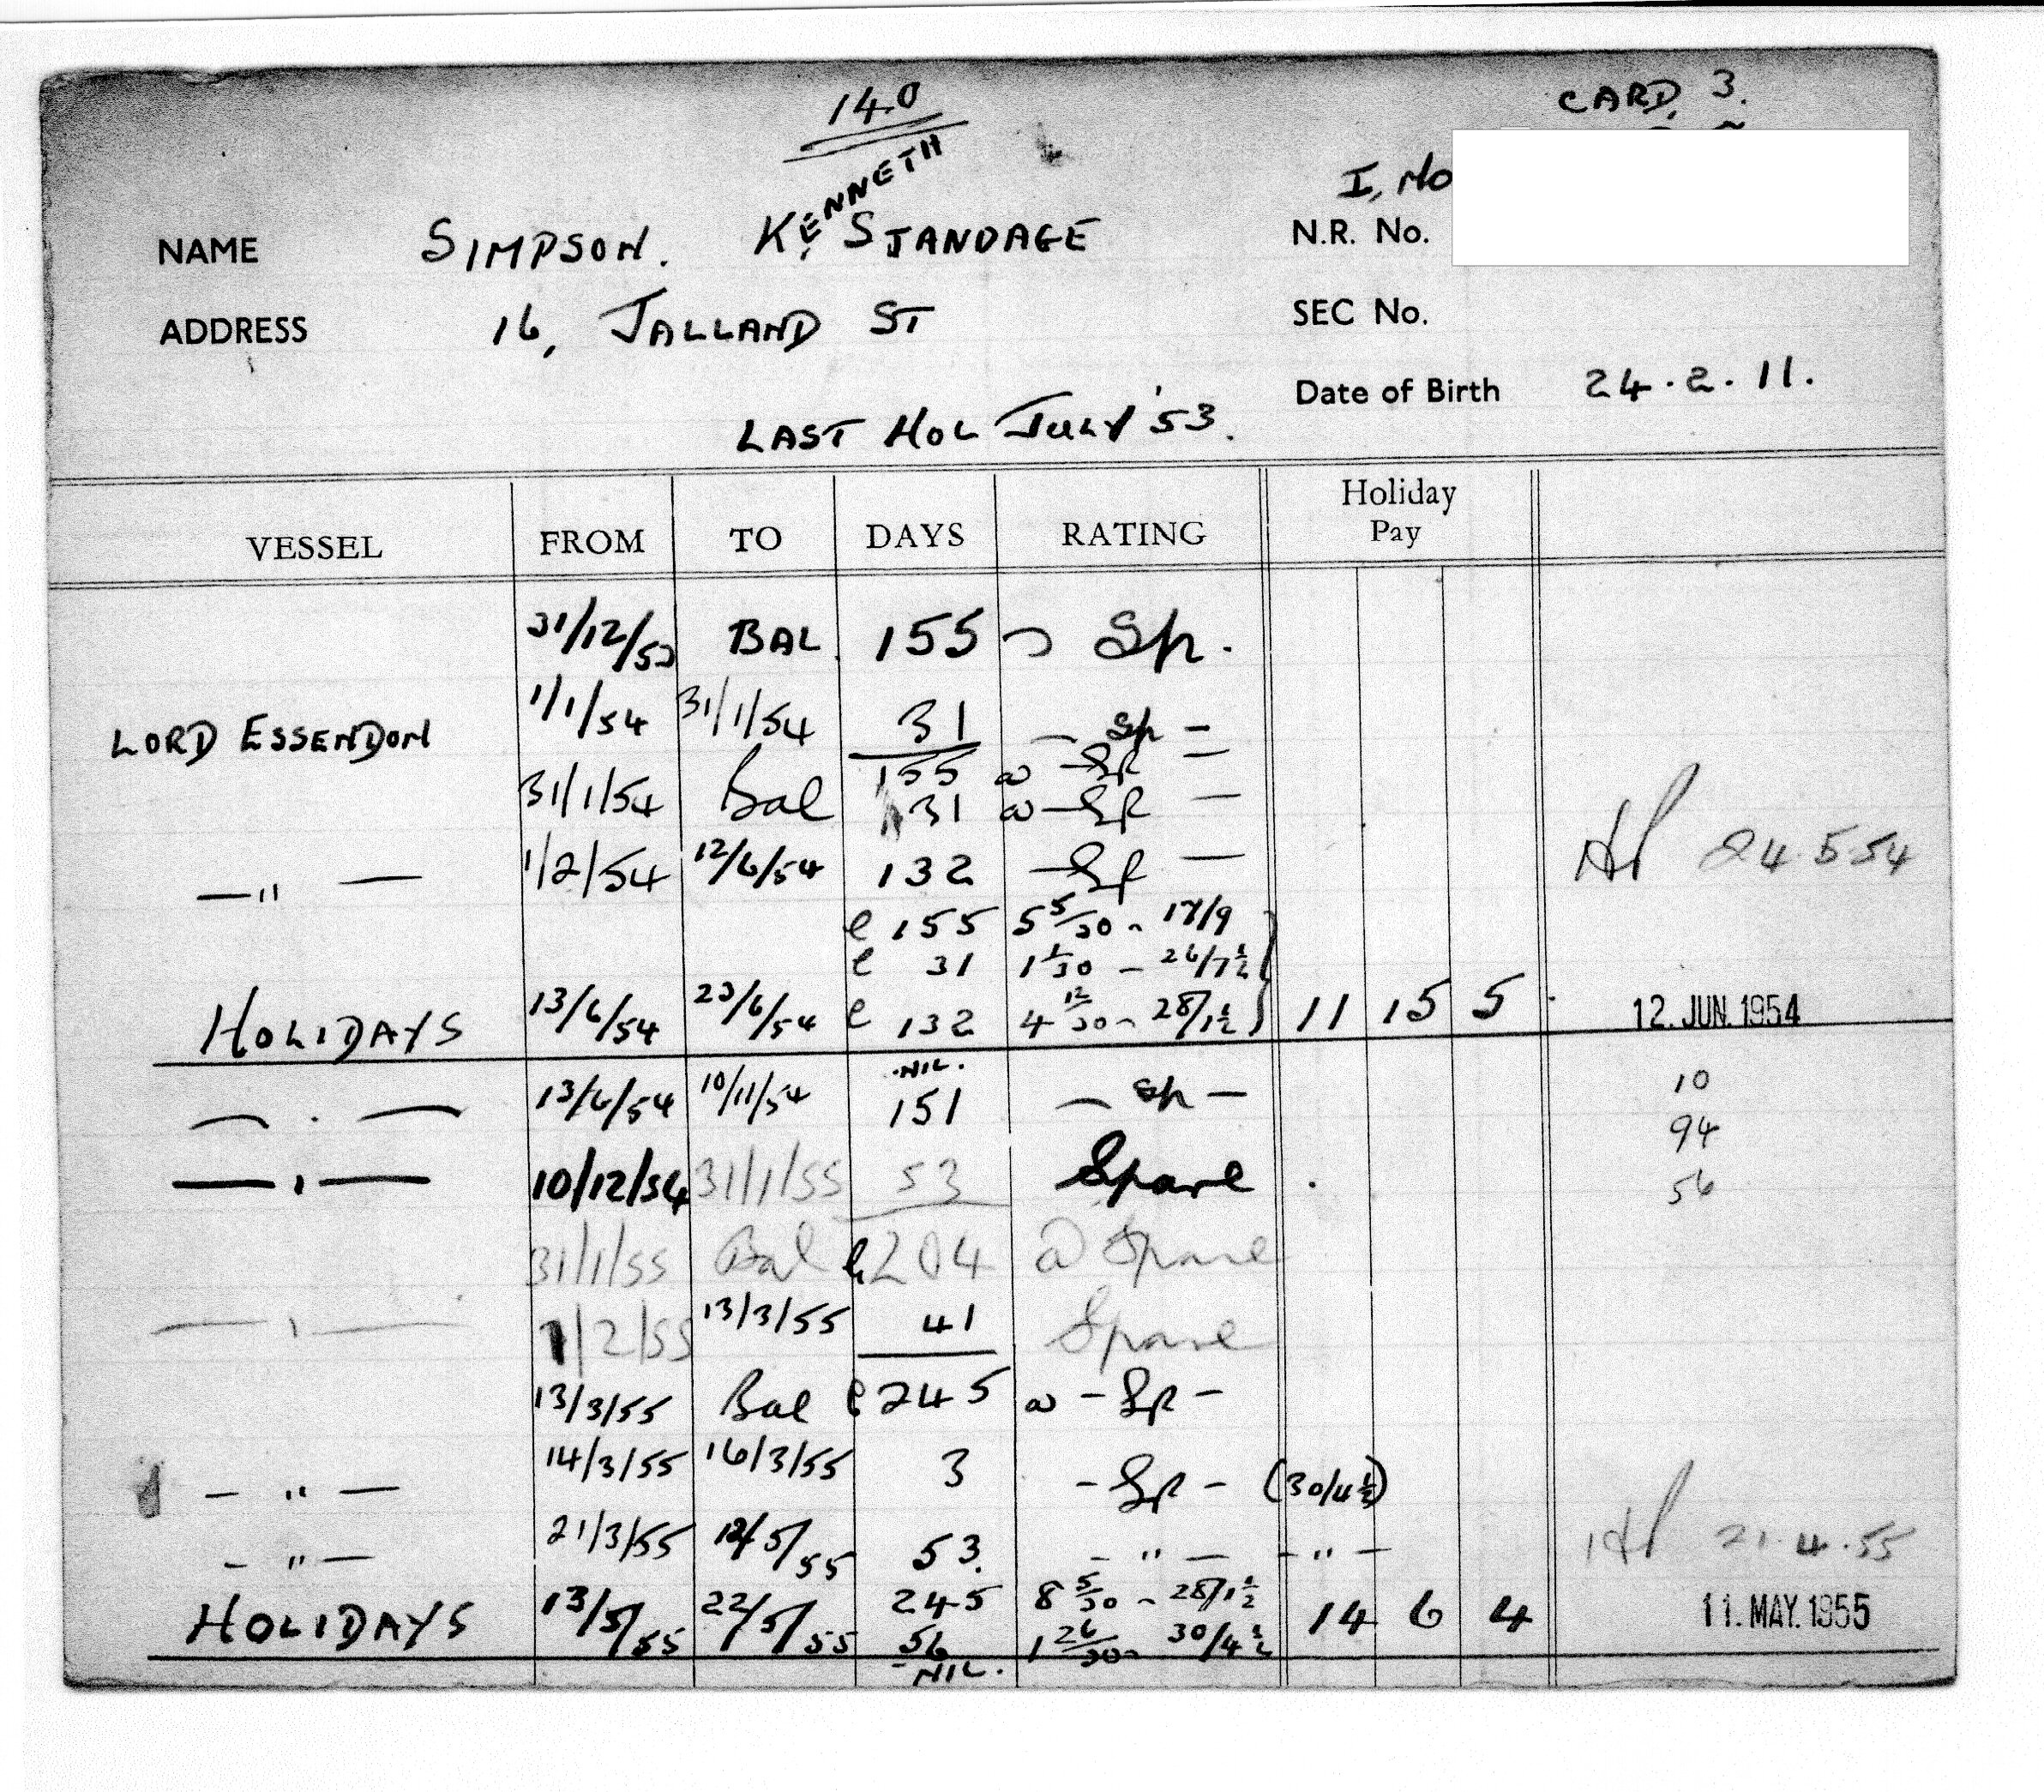 140
CARD 3.
KENNETH
I, No
NAME SIMPSON. K. STANDAGE N.R. No.
ADDRESS 16, JALLAND ST SEC No.
Date of Birth 24.2.11.
LAST HOL JULY '53.
VESSEL FROM TO DAYS RATING Holiday Pay
31/12/53 BAL. 155 Sp.
LORD ESSENDON 1/1/54 31/1/54 31 — Sp —
155 @ — Sp —
31/1/54 Bal 31 @ — Sp —
—"— 1/2/54 12/6/54 132 — Sp — 24.5.54
e 155 5 5/30 - 17/9
e 31 1 1/30 - 26/7½
HOLIDAYS 13/6/54 23/6/54 e 132 4 12/30 - 28/1½ 11 15 5 12. JUN. 1954
NIL.
— . — 13/6/54 10/11/54 151 — Sp — 10
94
— , — 10/12/54 31/1/55 53 Spare . 56
31/1/55 Bal 204 @ Spare
— , — 1/2/55 13/3/55 41 Spare
13/3/55 Bal 245 @ - Sp -
- " — 14/3/55 16/3/55 3 - Sp - (30/4½)
- " — 21/3/55 12/5/55 53. - " — - " — 21.4.55
HOLIDAYS 13/5/55 22/5/55 245 8 5/30 - 28/1½ 14 6 4 11. MAY. 1955
56 1 26/30 - 30/4½
- NIL.